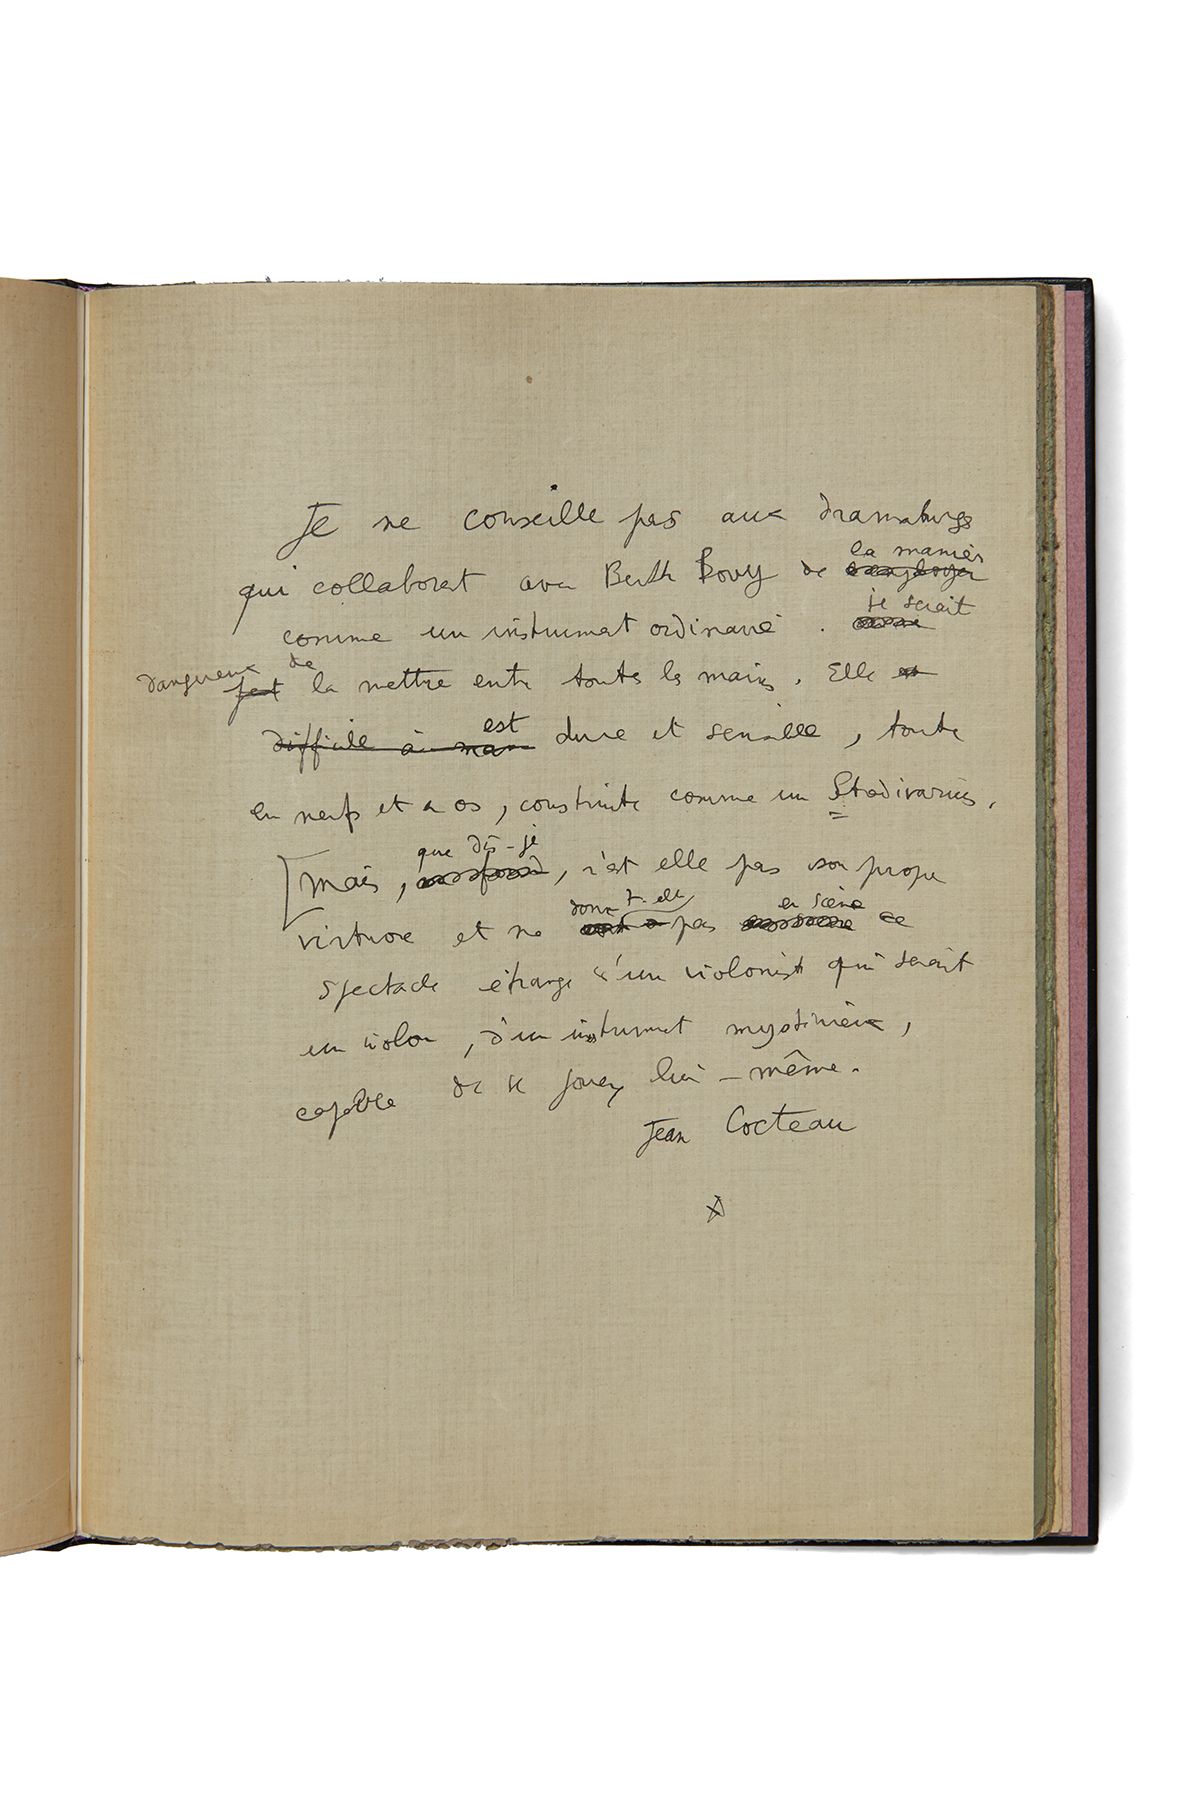 Je ne conseille pas aux dramaturges
qui collaborent avec Berthe Bovy de la manier
comme un instrument ordinaire. Il serait
dangereux de la mettre entre toutes les mains. Elle
difficile à est dure et sensible, toute
en nerfs et en os, construite comme un Stradivarius.
[mais, que dis-je, n'est elle pas son propre
virtuose et ne donne-t-elle pas en scène ce
spectacle étrange d'un violoniste qui serait
un violon, d'un instrument mystérieux,
capable de se jouer lui-même.
Jean Cocteau